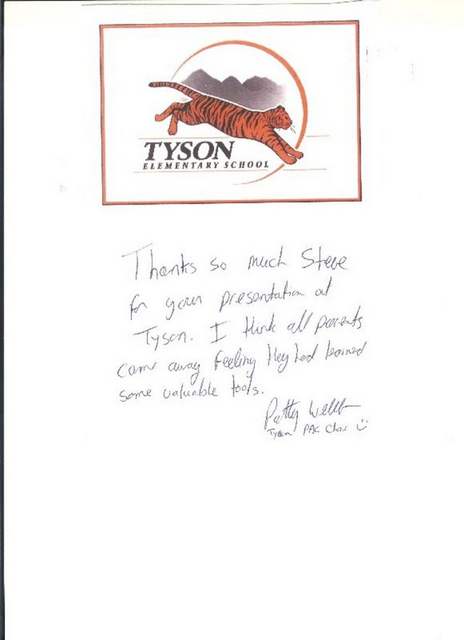 TYSON
ELEMENTARY SCHOOL
Thanks so much Steve
for your presentation at
Tyson. I think all parents
came away feeling they had learned
some valuable tools.
Patty
Tyson PAC Chair